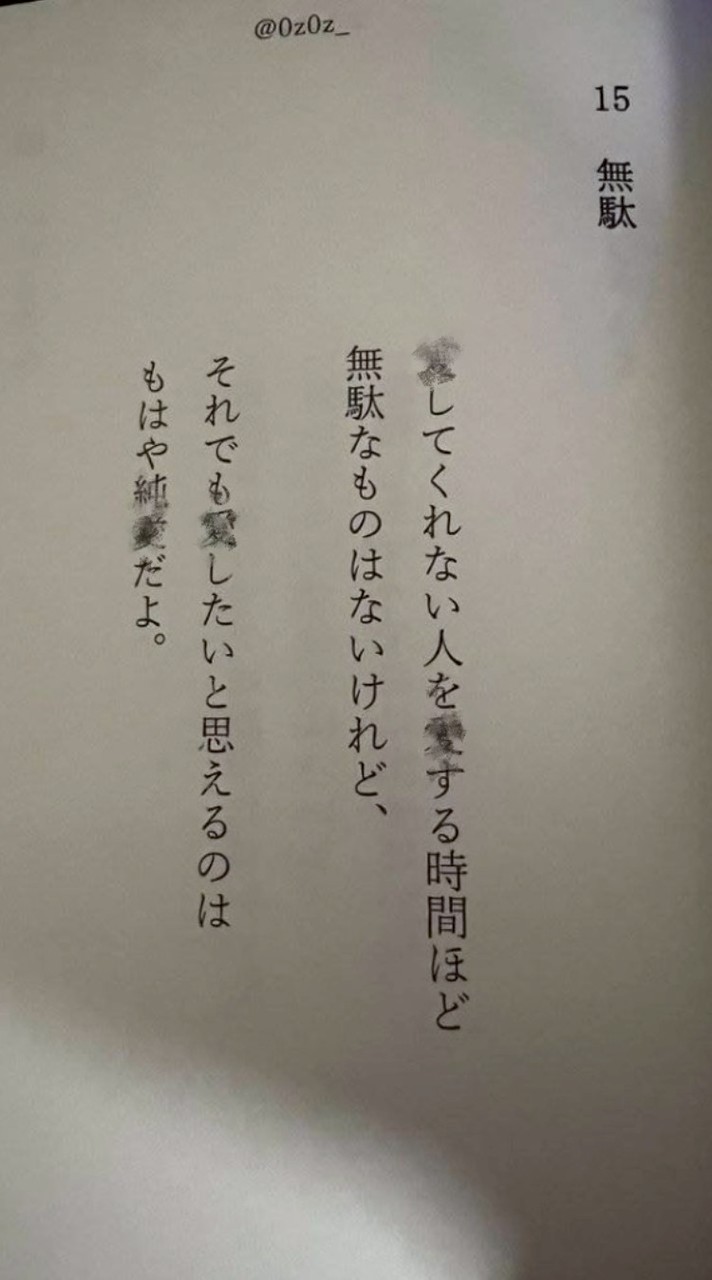 @0z0z_
15 無駄
愛してくれない人を愛する時間ほど
無駄なものはないけれど、
それでも愛したいと思えるのは
もはや純愛だよ。